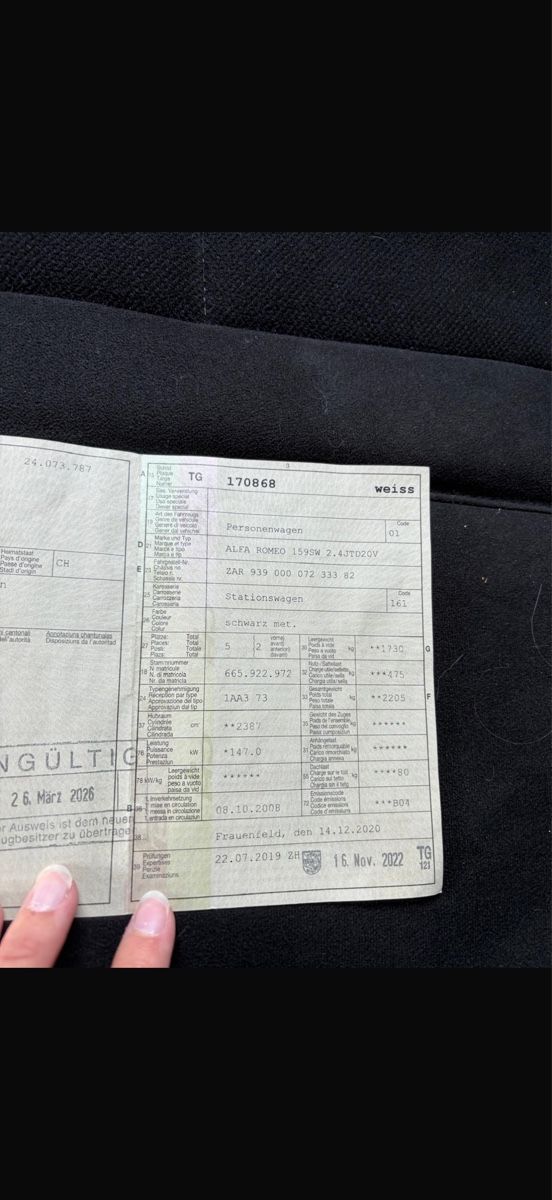 24.073.787
Heimatstaat
Pays d'origine
Paese d'origine
Stadi d'origin
CH
Annotaziuns chantunalas
Disposiziuns da l'autoritad
NGÜLTIG
26. März 2026
r Ausweis ist dem neuen
ugbesitzer zu übertrage
3
A 15 Schild
Plaque
Targa
Numer
TG 170868 weiss
17
Art des Fahrzeugs
Genre de véhicule
Genere di veicolo
Gener dal vehichel
19 Personenwagen Code 01
D 21 Marke und Typ
Marque et type
Marca e tipo
Marca e tip
ALFA ROMEO 159SW 2.4JTD20V
E 23 Fahrgestell-Nr.
Châssis no
Telaio n.
Schassis nr.
ZAR 939 000 072 333 82
25 Karosserie
Carrosserie
Carrozzeria
Carossaria
Stationswagen Code 161
26 Farbe
Couleur
Colore
Colur
schwarz met.
27 Plätze: Total
Places: Total
Posti: Totale
Plazs: Total
5 2 vorne
avant
anteriori
davant
30 Leergewicht
Poids à vide
Peso a vuoto
Paisa da vid
kg **1730 G
18 Stammnummer
N matricule
N. di matricola
Nr. da matricla
665.922.972
32 Nutz-/Sattellast
kg ***475
24 Typengenehmigung
Réception par type
Approvazione del tipo
Approvaziun dal tip
1AA3 73
33 Gesamtgewicht
Poids total
Peso totale
Paisa totala
kg **2205 F
37 Hubraum
Cylindrée
Cilindrata
Cilindrada
cm³ **2387
35 Gewicht des Zuges
Poids de l'ensemble
Peso del convoglio
Paisa cumposiziun
kg ******
76 Leistung
Puissance
Potenza
Prestaziun
kW *147.0
31 Anhängelast
Poids remorquable
Carico rimorchiato
Chargia annexa
kg ******
78 kW/kg Leergewicht
poids à vide
peso a vuoto
paisa da vid
******
55 Dachlast
Charge sur le toit
Carico sul tetto
Chargia sin il tetg
kg ****80
B 36 1. Inverkehrsetzung
1 mise en circulation
1 messa in circolazione
1 entrada en circulaziun
08.10.2008
72 Emissionscode
Code émissions
Codice emissioni
Code d'emissiuns
***B04
38 Frauenfeld, den 14.12.2020
39 Prüfungen
Expertises
Perizie
Examinaziuns
22.07.2019 ZH 16. Nov. 2022 TG
121